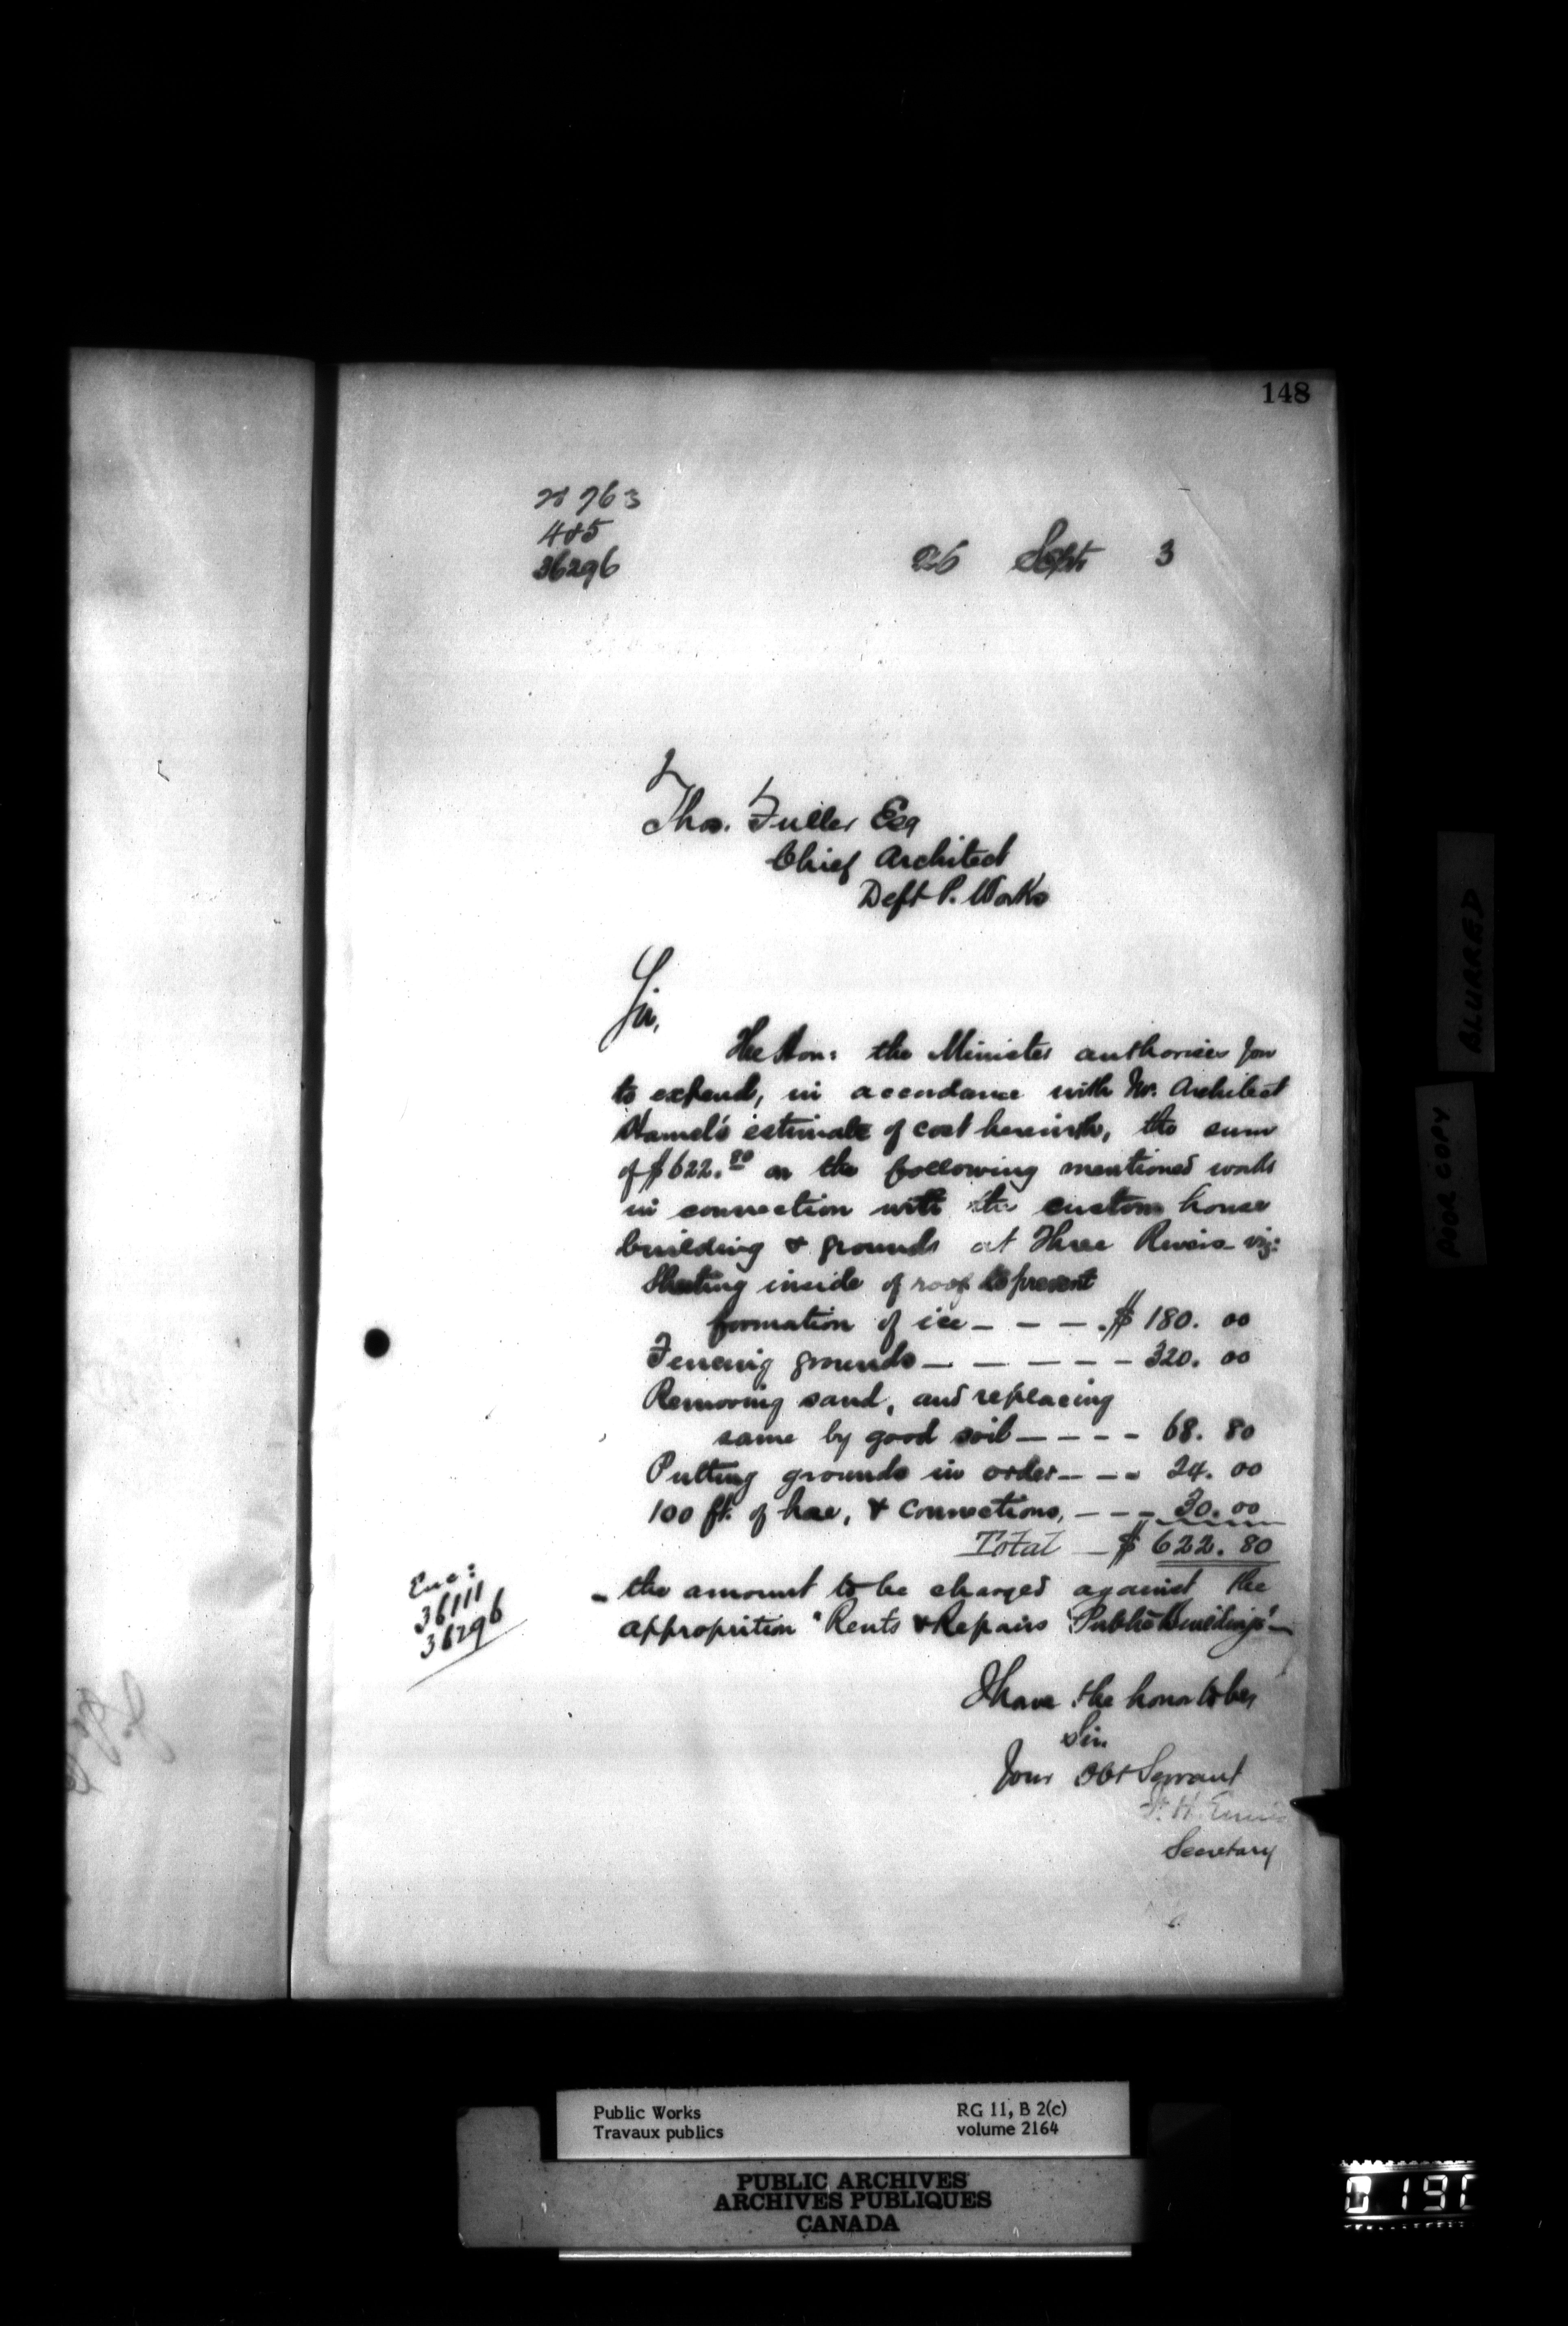 148
763
485
36296
26 Sept 3
Thos. Fuller Esq
Chief Architect
Dept P. Works
Sir,
The Hon: the Minister authorises you
to expend, in accordance with Mr. Architect
Hamel's estimate of cost herewith, the sum
of $622.80 on the following mentioned works
in connection with the custom house
building & grounds at Three Rivers viz:
Sheeting inside of roof to prevent
formation of ice — — — $ 180. 00
Fencing grounds — — — — — 320. 00
Removing sand, and replacing
same by good soil — — — — 68. 80
Putting grounds in order — — — 24. 00
100 ft. of hose, & connections, — — — 30. 00
Total — $ 622. 80
Enc:
36111
36296
— the amount to be charged against the
approprition "Rents & Repairs Public Buildings" —
I have the honor to be,
Sir
Your Obt Servant
F. H. Ennis
Secretary
POOR COPY
BLURRED
Public Works
Travaux publics
RG 11, B 2(c)
volume 2164
PUBLIC ARCHIVES
ARCHIVES PUBLIQUES
CANADA